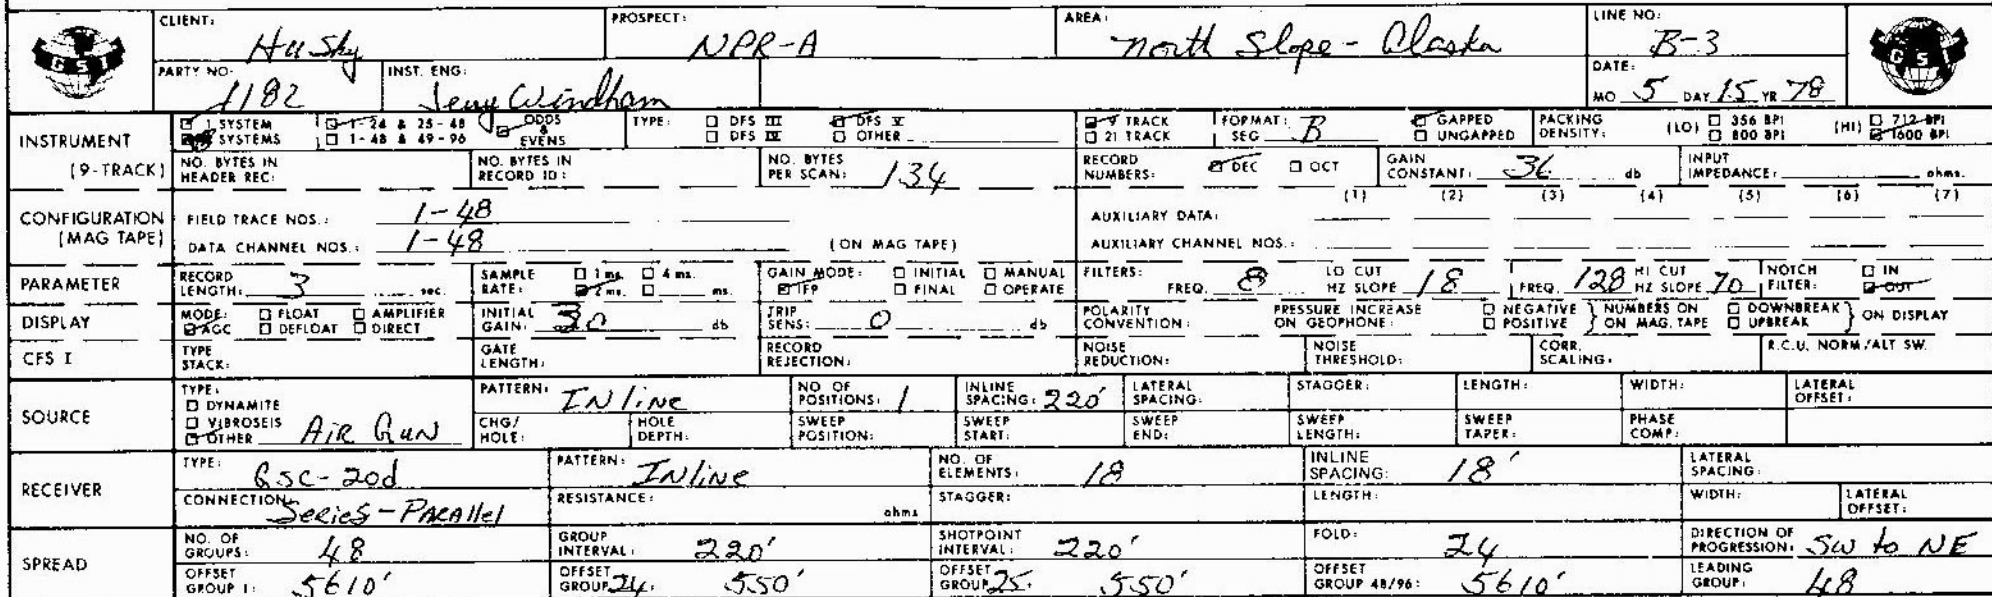 CLIENT: Husky PROSPECT: NPR-A AREA: North Slope - Alaska LINE NO: B-3
GSI
PARTY NO: 1182 INST. ENG: Jerry Windham DATE: MO 5 DAY 15 YR 78
GSI
INSTRUMENT (9-TRACK)
1 SYSTEM 1-24 & 25-48 ODDS & EVENS TYPE: DFS III DFS V 9 TRACK FORMAT: SEG B GAPPED PACKING DENSITY: (LO) 356 BPI (HI) 712 BPI
SYSTEMS 1-48 & 49-96 DFS IV OTHER 21 TRACK UNGAPPED 800 BPI 1600 BPI
NO. BYTES IN HEADER REC: NO. BYTES IN RECORD ID: NO. BYTES PER SCAN: 134 RECORD NUMBERS: DEC OCT GAIN CONSTANT: 36 db INPUT IMPEDANCE: ohms.
CONFIGURATION (MAG TAPE)
(1) (2) (3) (4) (5) (6) (7)
FIELD TRACE NOS.: 1-48 AUXILIARY DATA:
DATA CHANNEL NOS.: 1-48 (ON MAG TAPE) AUXILIARY CHANNEL NOS.:
PARAMETER
RECORD LENGTH: 3 sec. SAMPLE RATE: 1 ms. 4 ms. 2 ms. ms. GAIN MODE: INITIAL MANUAL IFP FINAL OPERATE FILTERS: FREQ. 8 LO CUT HZ SLOPE 18 FREQ. 128 HI CUT HZ SLOPE 70 NOTCH FILTER: IN OUT
DISPLAY
MODE: FLOAT AMPLIFIER AGC DEFLOAT DIRECT INITIAL GAIN: 30 db TRIP SENS: 0 db POLARITY CONVENTION: PRESSURE INCREASE ON GEOPHONE: NEGATIVE POSITIVE NUMBERS ON ON MAG. TAPE DOWNBREAK UPBREAK ON DISPLAY
CFS I
TYPE STACK: GATE LENGTH: RECORD REJECTION: NOISE REDUCTION: NOISE THRESHOLD: CORR. SCALING: R.C.U. NORM/ALT SW.
SOURCE
TYPE: DYNAMITE VIBROSEIS OTHER AIR GUN
PATTERN: INline NO OF POSITIONS: 1 INLINE SPACING: 220' LATERAL SPACING: STAGGER: LENGTH: WIDTH: LATERAL OFFSET:
CHG/HOLE: HOLE DEPTH: SWEEP POSITION: SWEEP START: SWEEP END: SWEEP LENGTH: SWEEP TAPER: PHASE COMP:
RECEIVER
TYPE: GSC-20d PATTERN: INline NO. OF ELEMENTS: 18 INLINE SPACING: 18' LATERAL SPACING:
CONNECTION: Series-Parallel RESISTANCE: ohms STAGGER: LENGTH: WIDTH: LATERAL OFFSET:
SPREAD
NO. OF GROUPS: 48 GROUP INTERVAL: 220' SHOTPOINT INTERVAL: 220' FOLD: 24 DIRECTION OF PROGRESSION: SW to NE
OFFSET GROUP 1: 5610' OFFSET GROUP 24: 550' OFFSET GROUP 25: 550' OFFSET GROUP 48/96: 5610' LEADING GROUP: 48